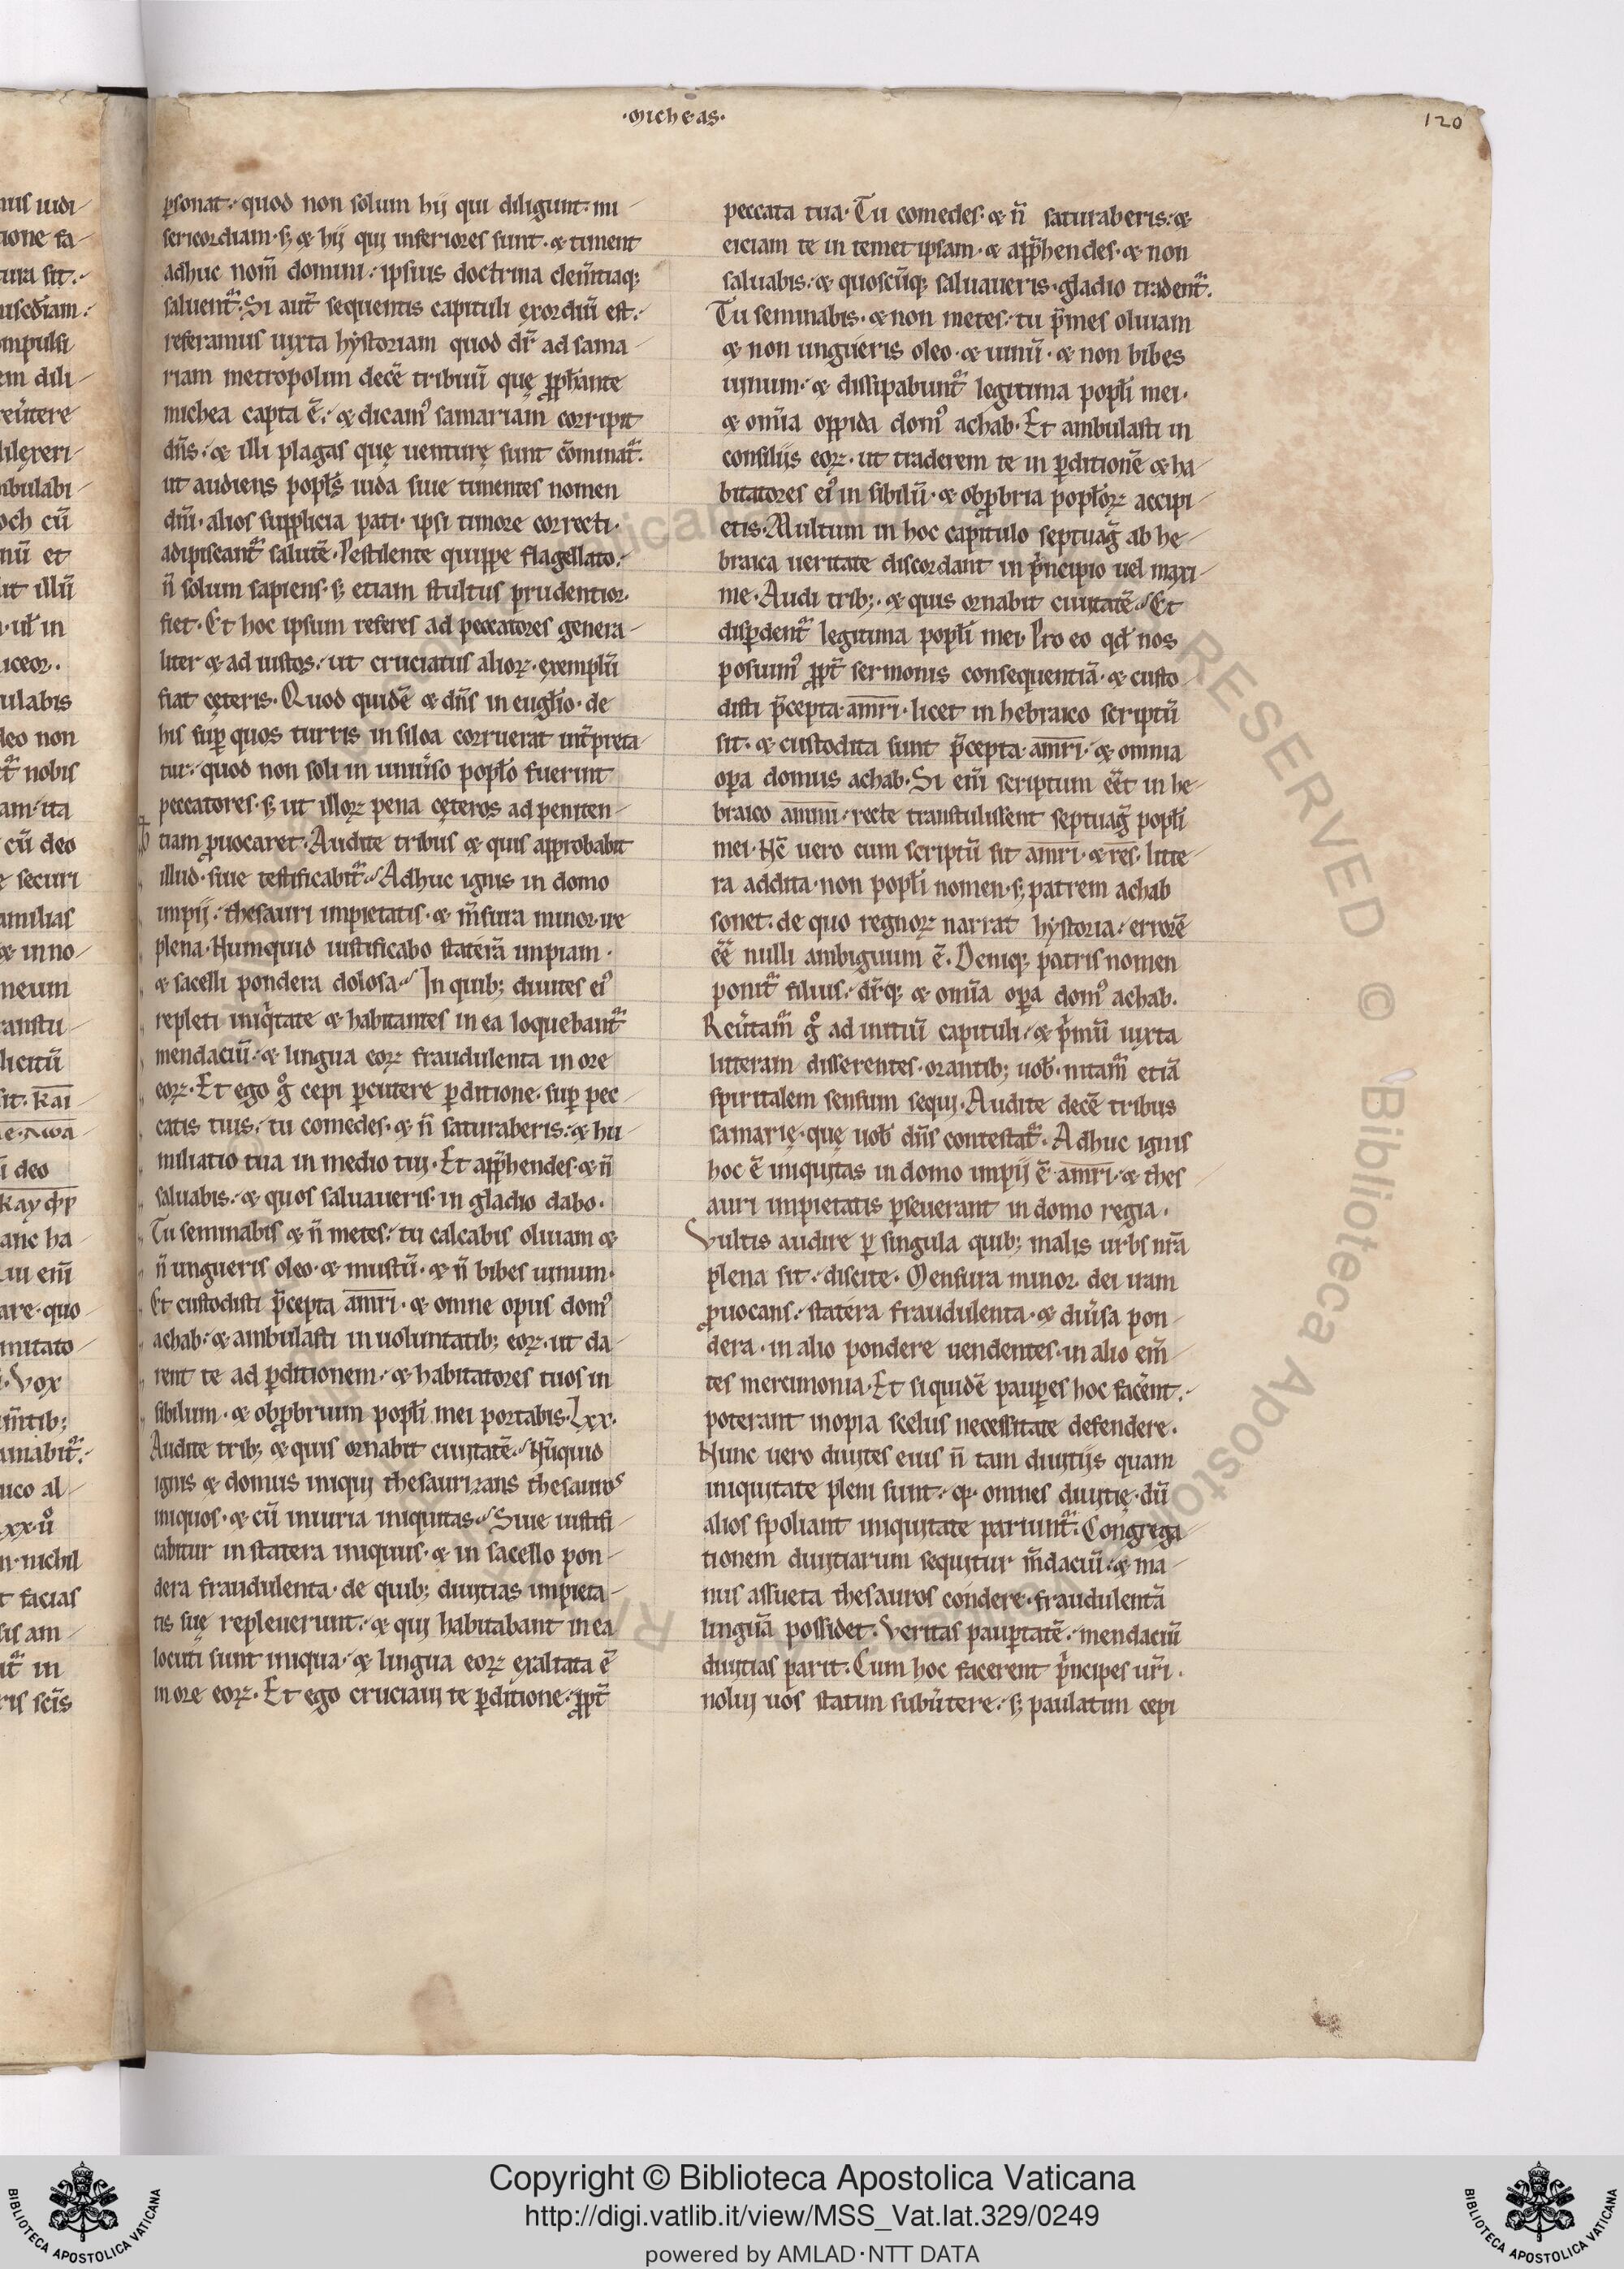 ·Micheas·
120
p̲sonat·quod non solum hij qui diligunt mi
sericordiam·s; & hij qui inferiores sunt·& timent
adhuc nom̅ domini·ipsius doctrina clem̅tiaq;
saluent᷑·Si aut̅ sequentis capituli exordiu̅ est·
referamus iuxta hystoriam quod dr̅ ad sama
riam metropolim dece̅ tribuu̅ quę p̲ph̅ante
michea capta e̅·& dicam᷒ samariam corripit
dn̅s·& illi plagas quę venturę sunt co̅minat᷑·
ut audiens popl̅s iuda siue timentes nomen
dn̅i·alios supplicia pati·ipsi timore correcti·
adipiscant᷑ salute̅·Pestilente quippe flagellato·
n̅ solum sapiens·s; etiam stultus prudentior·
fiet·Et hoc ipsum referes ad peccatores genera
liter & ad iustos·ut cruciatus alioꝝ·exemplu̅
fiat cęteris·Quod quide̅ & dn̅s in eugl̅io·de
his sup̲ quos turris in siloa corruerat int̅preta
tur·quod non soli in uniu̅so popl̅o fuerint
peccatores·s; ut illoꝝ pena cęteros ad peniten
tiam ꝓuocaret·Audite tribus & quis approbabit
illud·siue testificabit᷑·Adhuc ignis in domo
impij·thesauri impietatis·& m̅sura minor·ire
plena·Numquid iustificabo statera̅ impiam·
& sacelli pondera dolosa·In quib; diuites ei᷒
repleti iniq̅tate & habitantes in ea loquebant᷑
mendaciu̅·& lingua eoꝝ fraudulenta in ore
eoꝝ·Et ego g̊ cepi p̲cutere p̲ditione·sup̲ pec
catis tuis·tu comedes·& n̅ saturaberis·& hu
miliatio tua in medio tui·Et appr̅hendes·& n̅
saluabis·& quos saluaueris·in gladio dabo·
Tu seminabis & n̅ metes·tu calcabis oliuam &
n̅ ungueris oleo·& mustu̅·& n̅ bibes uinum·
Et custodisti p̅cepta a̅m̅r̅i̅·& omne opus dom᷒
achab·& ambulasti in uoluntatib; eoꝝ·ut da
rent te ad p̲ditionem·& habitatores tuos in
sibilum·& obp̲brium popl̅i mei portabis·Lxx·
Audite trib; & quis ornabit ciuitate̅·Nu̅quid
ignis & domus iniqui thesaurizans thesauros
iniquos·& cu̅ iniuria iniquitas·Siue iustifi
cabitur in statera iniquus·& in sacello pon
dera fraudulenta·de quib; diuitias impieta
tis suę repleuerunt·& qui habitabant in ea
locuti sunt iniqua·& lingua eoꝝ exaltata e̅
in ore eoꝝ·Et ego cruciaui te p̲ditione·ꝓpt̅
peccata tua·Tu comedes·& n̅ saturaberis·&
eiciam te in temet ipsam·& appr̅hendes·& non
saluabis·& quoscu̅q; saluaueris·gladio tradent᷑·
Tu seminabis·& non metes·tu p̅mes oliuam
& non ungueris oleo·& uinu̅·& non bibes
uinum·& dissipabunt᷑ legitima popl̅i mei·
& omi̅a oppida dom᷒ achab·Et ambulasti in
consilijs eoꝝ·ut traderem te in p̲ditione̅ & ha
bitatores ei᷒ in sibilu̅·& obp̲bria popl̅oꝝ accipi
etis·Multum in hoc capitulo septuag̅ ab he
braica ueritate discordant in p̅ncipio uel maxi
me·Audi trib;·& quis ornabit ciuitate̅·Et
disp̲dent᷑ legitima popl̅i mei·Pro eo qd̅ nos
posuim᷒ ꝓpt̅ sermonis consequentia̅·& custo
disti p̅cepta·a̅m̅r̅i̅·licet in hebraico scriptu̅
sit·& custodita sunt p̅cepta·a̅m̅r̅i̅·& omnia
op̲a domus achab·Si em̅ scriptum ee̅t in he
braico a̅m̅m̅i̅·recte transtulissent septuag̅ popl̅i
mei·Nc̅ uero cum scriptu̅ sit a̅m̅r̅i̅·& r̅e̅s̅·litte
ra addita·non popl̅i nomen·s; patrem achab
sonet·de quo regnoꝝ narrat hystoria·errore̅
ee̅ nulli ambiguum e̅·Deniq; patris nomen
ponit᷑ filius·dr̅q; & omi̅a op̲a dom᷒ achab·
Reu̅tam᷑ g̊ ad initiu̅ capituli·& p̅mu̅ iuxta
litteram disserentes·orantib; uob̅·nitam᷑ etia̅
spiritalem sensum sequi·Audite dece̅ tribus
samarię·quę uob̅ dn̅s contestat᷑·Adhuc ignis
hoc e̅ iniquitas in domo impij e̅ a̅m̅r̅i̅·& thes
auri impietatis p̲seuerant in domo regia·
Vultis audire p̲ singula quib; malis urbs nr̅a
plena sit·discite·Mensura minor dei iram
ꝓuocans·statera fraudulenta·& diu̅sa pon
dera·in alio pondere uendentes·in alio em̅
tes mercimonia·Et siquide̅ paup̲es hoc face̅nt·
poterant inopia scelus necessitate defendere·
Nunc uero diuites eius n̅ tam diuitijs quam
iniquitate pleni sunt·q̲· omnes diuitię·du̅
alios spoliant iniquitate pariunt᷑·Congrega
tionem diuitiarum sequitur m̅daciu̅·& ma
nus assueta thesauros condere·fraudulenta̅
lingua̅ possidet·Veritas paup̲tate̅·mendaciu̅
diuitias parit·Cum hoc facerent p̅ncipes ur̅i·
nolui uos statim subu̅tere·s; paulatim cepi
Copyright © Biblioteca Apostolica Vaticana
http://digi.vatlib.it/view/MSS_Vat.lat.329/0249
powered by AMLAD·NTT DATA
BIBLIOTECA APOSTOLICA VATICANA
BIBLIOTECA APOSTOLICA VATICANA